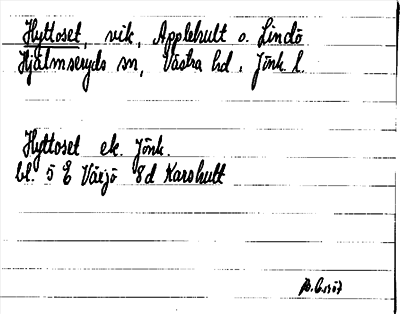 Hyttoset, vik, Applehult o. Lindö
Hjälmseryds sn, Västra hd. Jönk. l.
Hyttoset ek. Jönk.
bl. 5 E Växjö 8d Karshult